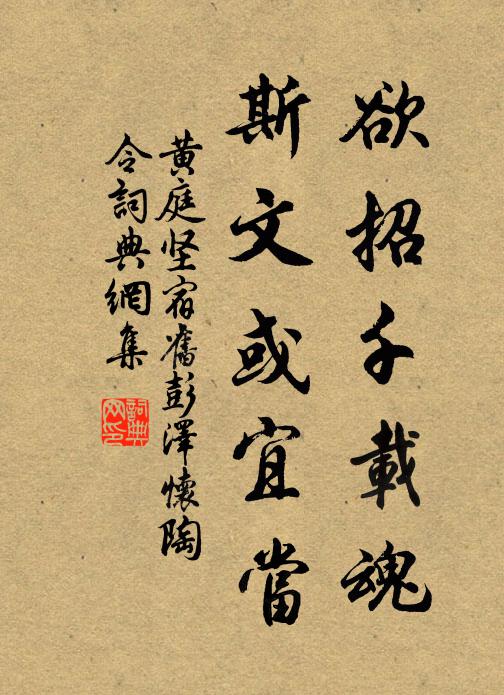 欲招千載魂
斯文或宜當
黄庭坚宿舊彭澤懷陶
令詞典網集
詞典
网印